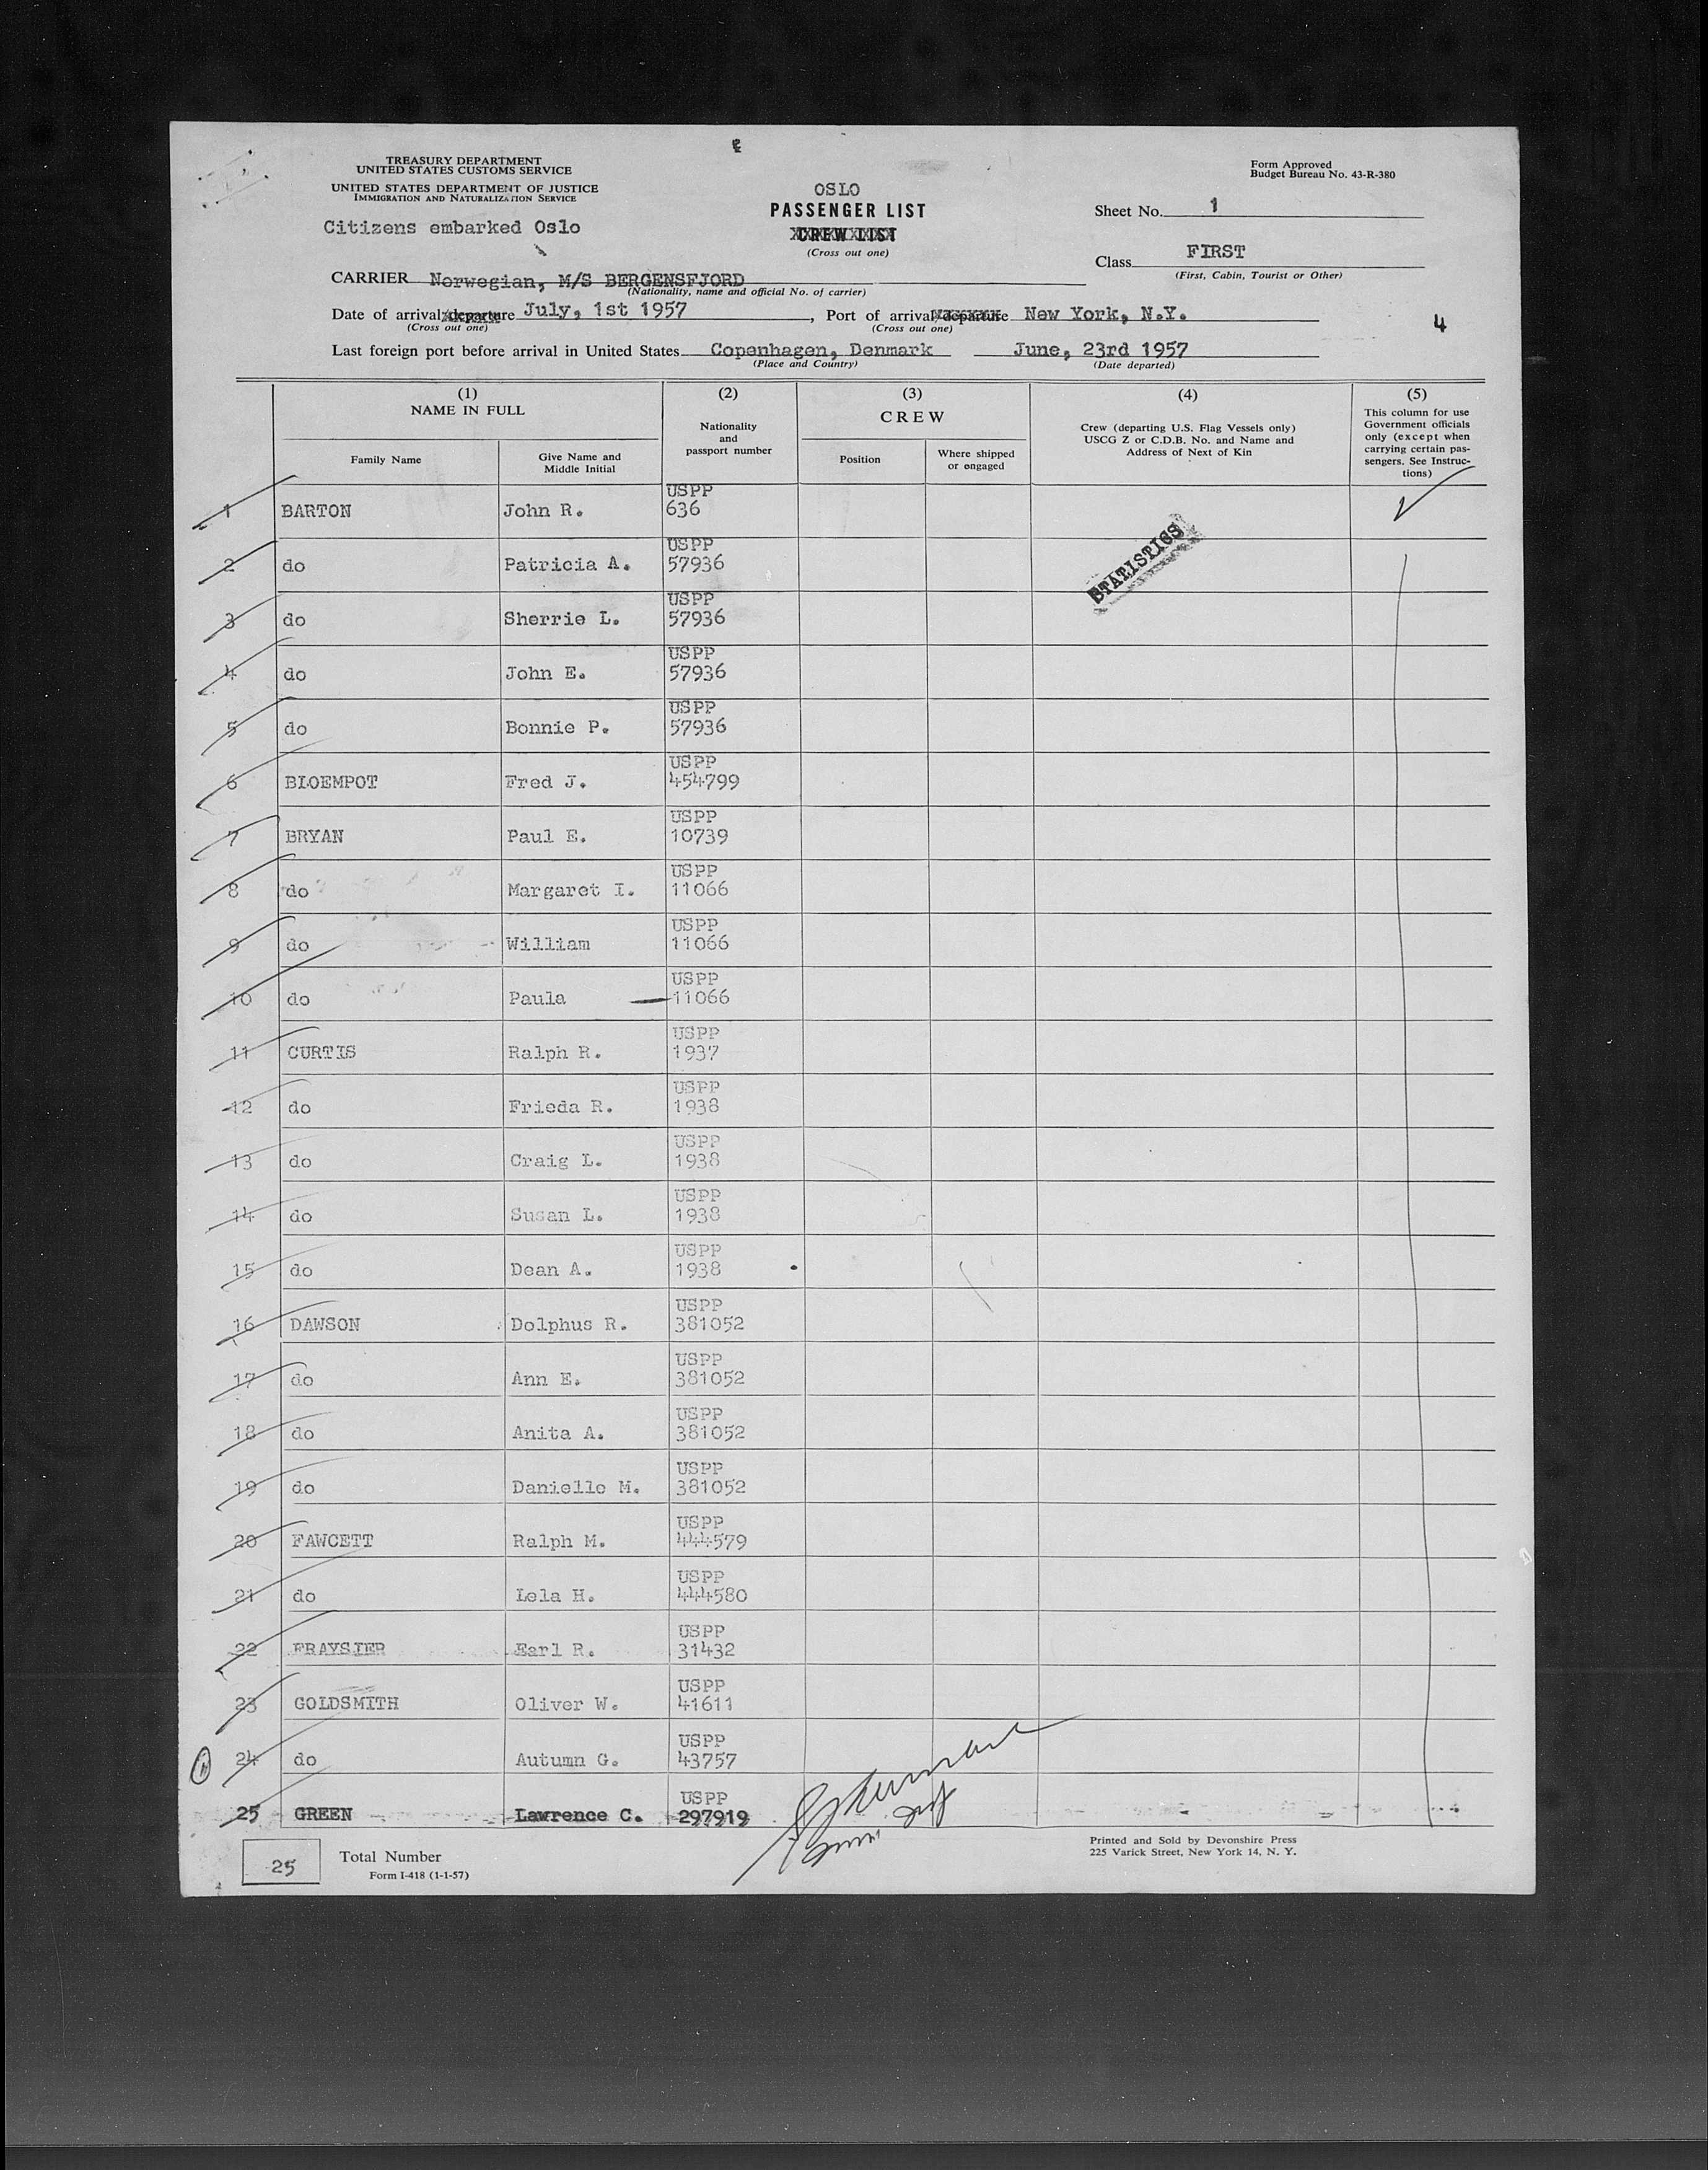 TREASURY DEPARTMENT
UNITED STATES CUSTOMS SERVICE
UNITED STATES DEPARTMENT OF JUSTICE
IMMIGRATION AND NATURALIZATION SERVICE
Citizens embarked Oslo
OSLO
PASSENGER LIST
CREW LIST
(Cross out one)
Form Approved
Budget Bureau No. 43-R-380
Sheet No. 1
Class FIRST
(First, Cabin, Tourist or Other)
CARRIER Norwegian, M/S BERGENSFJORD
(Nationality, name and official No. of carrier)
Date of arrival/departure July, 1st 1957, Port of arrival/departure New York, N.Y.
(Cross out one) (Cross out one)
4
Last foreign port before arrival in United States Copenhagen, Denmark June, 23rd 1957
(Place and Country) (Date departed)
(1) (2) (3) (4) (5)
NAME IN FULL
Family Name
Give Name and
Middle Initial
Nationality
and
passport number
CREW
Position
Where shipped
or engaged
Crew (departing U.S. Flag Vessels only)
USCG Z or C.D.B. No. and Name and
Address of Next of Kin
This column for use
Government officials
only (except when
carrying certain pas-
sengers. See Instruc-
tions)
USPP
1 BARTON John R. 636
USPP
2 do Patricia A. 57936
STATISTICS
USPP
3 do Sherrie L. 57936
USPP
4 do John E. 57936
USPP
5 do Bonnie P. 57936
USPP
6 BLOEMPOT Fred J. 454799
USPP
7 BRYAN Paul E. 10739
USPP
8 do Margaret I. 11066
USPP
9 do William 11066
USPP
10 do Paula 11066
USPP
11 CURTIS Ralph R. 1937
USPP
12 do Frieda R. 1938
USPP
13 do Craig L. 1938
USPP
14 do Susan L. 1938
USPP
15 do Dean A. 1938
USPP
16 DAWSON Dolphus R. 381052
USPP
17 do Ann E. 381052
USPP
18 do Anita A. 381052
USPP
19 do Danielle M. 381052
USPP
20 FAWCETT Ralph M. 444579
USPP
21 do Lela H. 444580
USPP
22 FRAYSIER Earl R. 31432
USPP
23 GOLDSMITH Oliver W. 41611
USPP
24 do Autumn G. 43757
USPP
25 GREEN Lawrence C. 297919
25 Total Number
Form I-418 (1-1-57)
Printed and Sold by Devonshire Press
225 Varick Street, New York 14, N. Y.